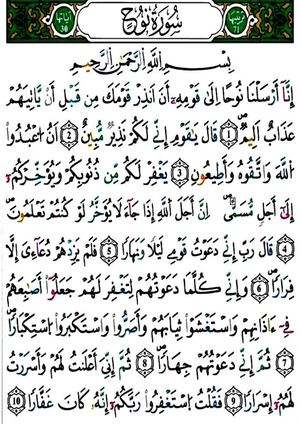 ترتيبها ٧١ سُورَةُ نُوحٍ آياتها ٣٠
بِسْمِ اللَّهِ الرَّحْمَٰنِ الرَّحِيمِ
إِنَّا أَرْسَلْنَا نُوحًا إِلَىٰ قَوْمِهِ أَنْ أَنذِرْ قَوْمَكَ مِن قَبْلِ أَن يَأْتِيَهُمْ
عَذَابٌ أَلِيمٌ ١ قَالَ يَٰقَوْمِ إِنِّي لَكُمْ نَذِيرٌ مُّبِينٌ ٢ أَنِ اعْبُدُوا
اللَّهَ وَاتَّقُوهُ وَأَطِيعُونِ ٣ يَغْفِرْ لَكُم مِّن ذُنُوبِكُمْ وَيُؤَخِّرْكُمْ
إِلَىٰ أَجَلٍ مُّسَمًّى إِنَّ أَجَلَ اللَّهِ إِذَا جَاءَ لَا يُؤَخَّرُ لَوْ كُنتُمْ تَعْلَمُونَ
٤ قَالَ رَبِّ إِنِّي دَعَوْتُ قَوْمِي لَيْلًا وَنَهَارًا ٥ فَلَمْ يَزِدْهُمْ دُعَاءِي إِلَّا
فِرَارًا ٦ وَإِنِّي كُلَّمَا دَعَوْتُهُمْ لِتَغْفِرَ لَهُمْ جَعَلُوا أَصَٰبِعَهُمْ
فِي ءَاذَانِهِمْ وَاسْتَغْشَوْا ثِيَابَهُمْ وَأَصَرُّوا وَاسْتَكْبَرُوا اسْتِكْبَارًا
٧ ثُمَّ إِنِّي دَعَوْتُهُمْ جِهَارًا ٨ ثُمَّ إِنِّي أَعْلَنتُ لَهُمْ وَأَسْرَرْتُ
لَهُمْ إِسْرَارًا ٩ فَقُلْتُ اسْتَغْفِرُوا رَبَّكُمْ إِنَّهُ كَانَ غَفَّارًا ١٠